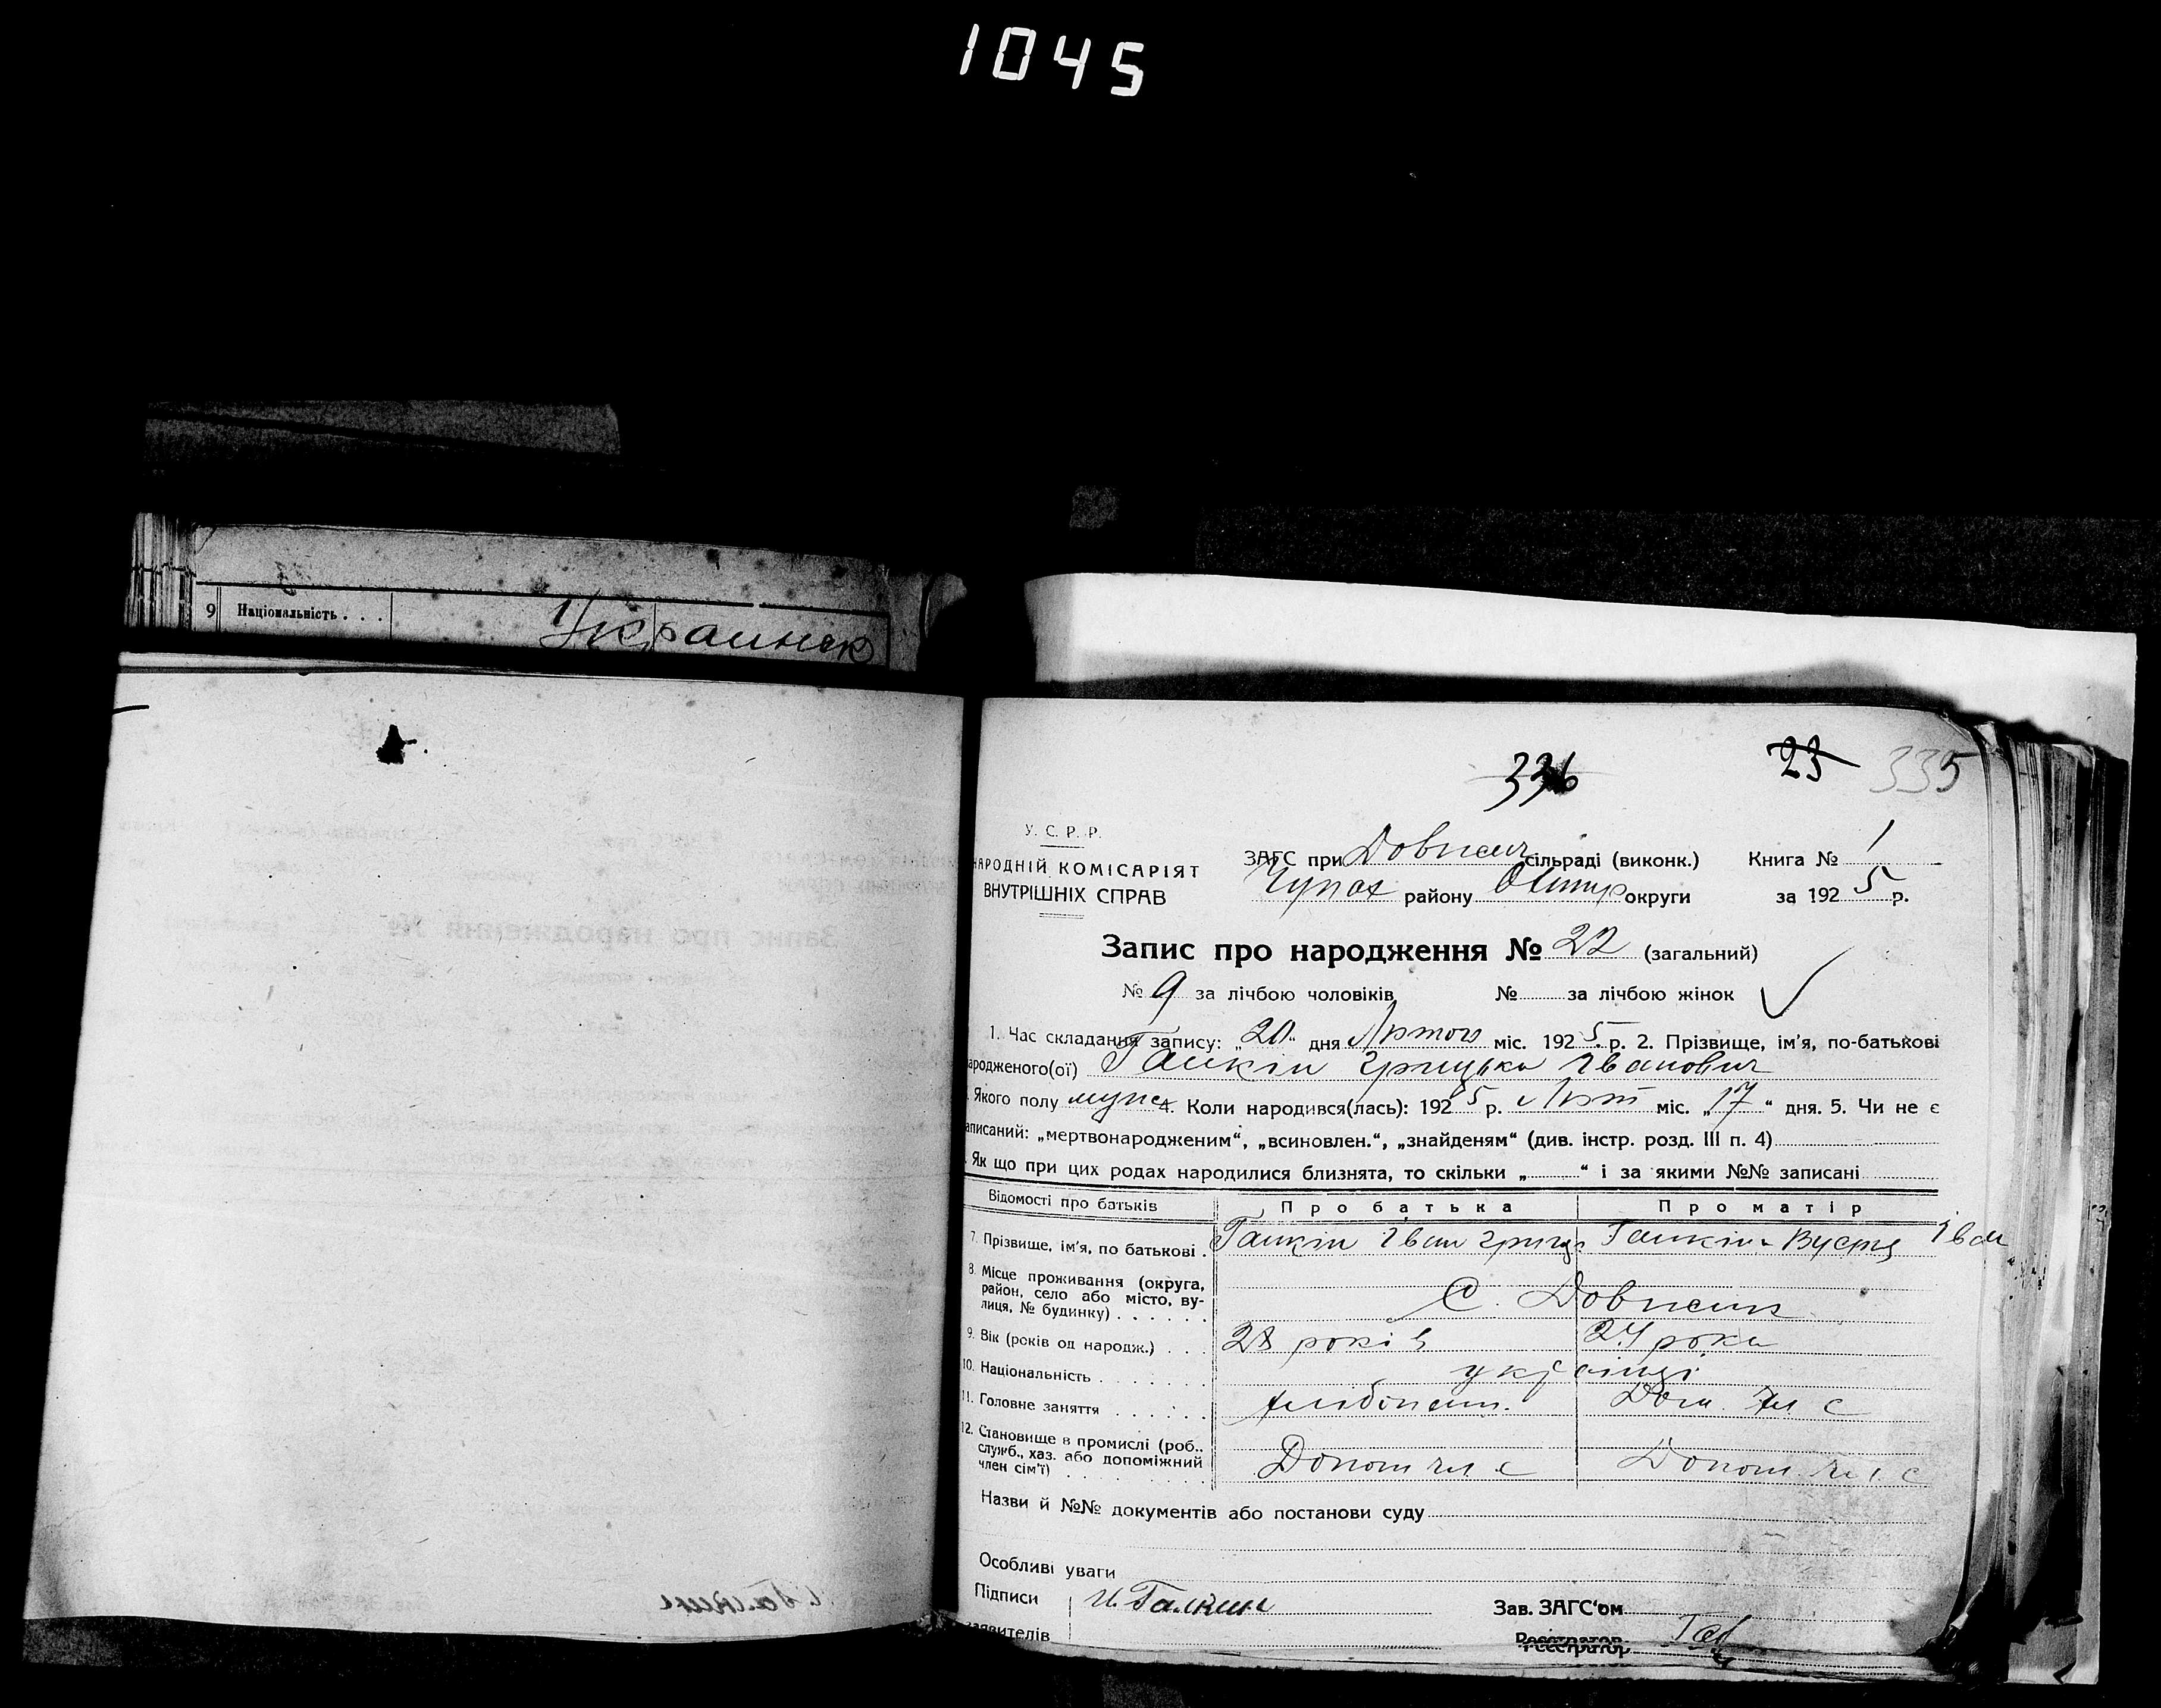 1045
9 Національність . . .
Украинск
336 23 335
У. С. Р. Р.
НАРОДНІЙ КОМІСАРІЯТ
ВНУТРІШНІХ СПРАВ
ЗАГС при сільраді (виконк.) Книга № 1
Чупах району Охтир округи за 1925 р.
Запис про народження № 22 (загальний)
№ 9 за лічбою чоловіків № за лічбою жінок
1. Час складання запису: „20“ дня Лютого міс. 1925 р. 2. Прізвище, ім'я, по-батькові
ародженого(ої) Галкін Грицько Іванович
. Якого полу мужс 4. Коли народився(лась): 1925 р. Лют міс. „17“ дня. 5. Чи не є
аписаний: „мертвонародженим“, „всиновлен.“, „знайденям“ (див. інстр. розд. III п. 4)
. Як що при цих родах народилися близнята, то скільки „ “ і за якими №№ записані
Відомості про батьків Про батька Про матір
7. Прізвище, ім'я, по батькові . Галкін Іван Гриць Галкіна Іван
8. Місце проживання (округа,
район, село або місто, ву-
лиця, № будинку) . . . . . . С.
9. Вік (років од народж.) . . . 28 років 24 роки
10. Національність . . . . . . . українці
11. Головне заняття . . . . . . хлібопаш. Дом. чл с
12. Становище в промислі (роб.,
служб., хаз. або допоміжний
член сім'ї) . . . . . . . . . Допом чл с Допом. чл. с
Назви й №№ документів або постанови суду
Особливі уваги
Підписи И. Галкин Зав. ЗАГС'ом
заявителів Реєстратор